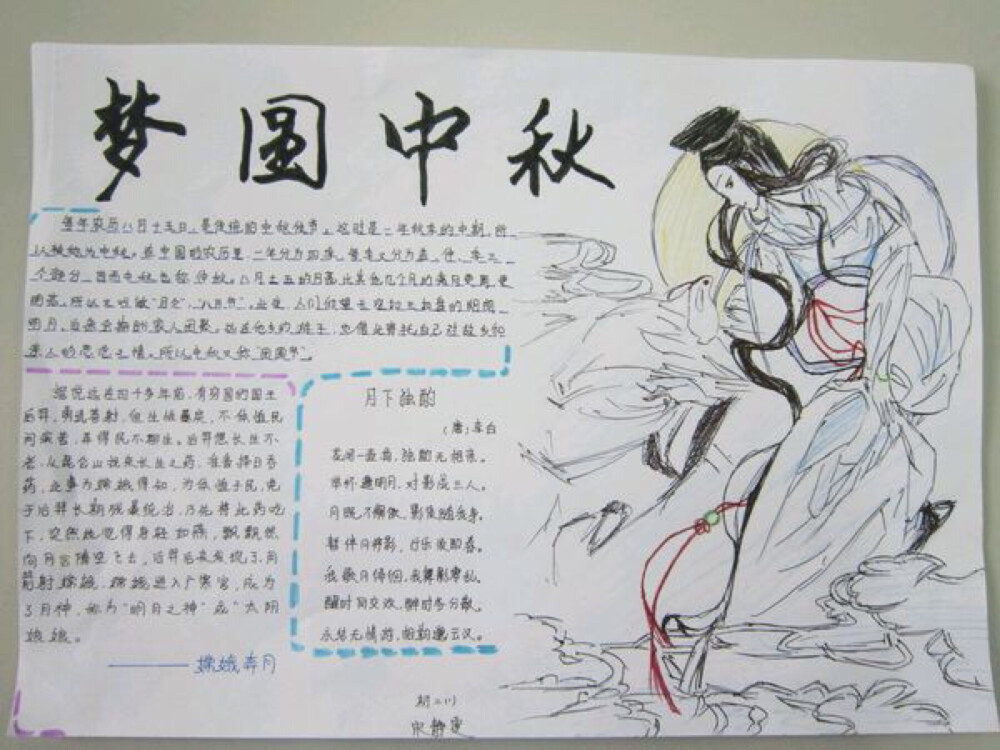 梦圆中秋
每年农历八月十五日,是传统的中秋佳节。这时是一年秋季的中期,所
以被称为中秋。在中国的农历里,一年分为四季,每季又分为孟、仲、季三
个部分,因而中秋也称仲秋。八月十五的月亮比其他几个月的满月更圆,更
明亮,所以又叫做“月夕”,“八月节”。此夜,人们仰望天空如玉如盘的朗朗
明月,自然会期盼家人团聚。远在他乡的游子,也借此寄托自己对故乡和
亲人的思念之情。所以中秋又称“团圆节”。
据说远在四千多年前,有穷国的国王
后羿,勇武善射,但生性暴戾,不体恤民
间疾苦,弄得民不聊生。后羿想长生不
老,从昆仑山找来长生之药,准备择日吞
药,此事为嫦娥得知,为体恤于民,免
于后羿长期残暴统治,乃先将此药吃
下,突然她觉得身轻如燕,飘飘然
向月宫悟空飞去,后羿后来发现了,向
前射嫦娥,嫦娥进入广寒宫,成为
了月神,称为“明月之神”或“太阴
娘娘。
———嫦娥奔月
月下独酌
(唐)李白
花间一壶酒,独酌无相亲。
举杯邀明月,对影成三人。
月既不解饮,影徒随我身。
暂伴月将影,行乐须即春。
我歌月徘徊,我舞影零乱。
醒时同交欢,醉时各分散。
永结无情游,相期邈云汉。
初二川
宋静